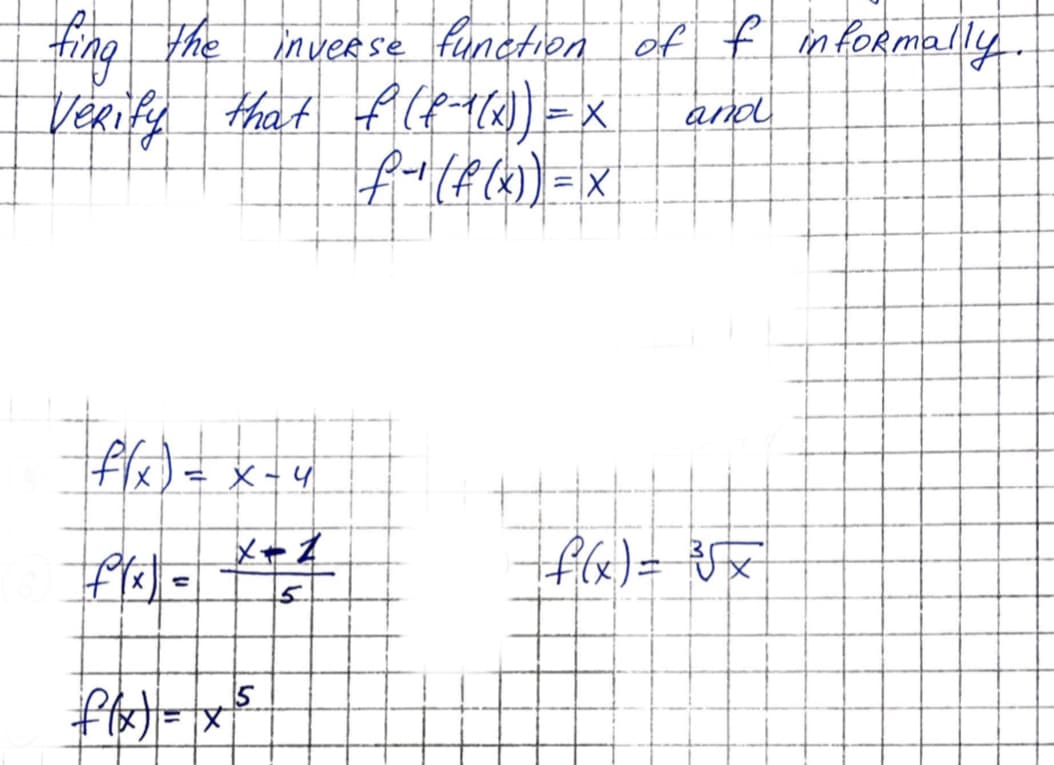 fing the inverse function of f informally.
Verify that f(f⁻¹(x)) = x and
f⁻¹(f(x)) = x
f(x) = x - 4
f(x) = x+1/5
f(x) = ∛x
f(x) = x⁵